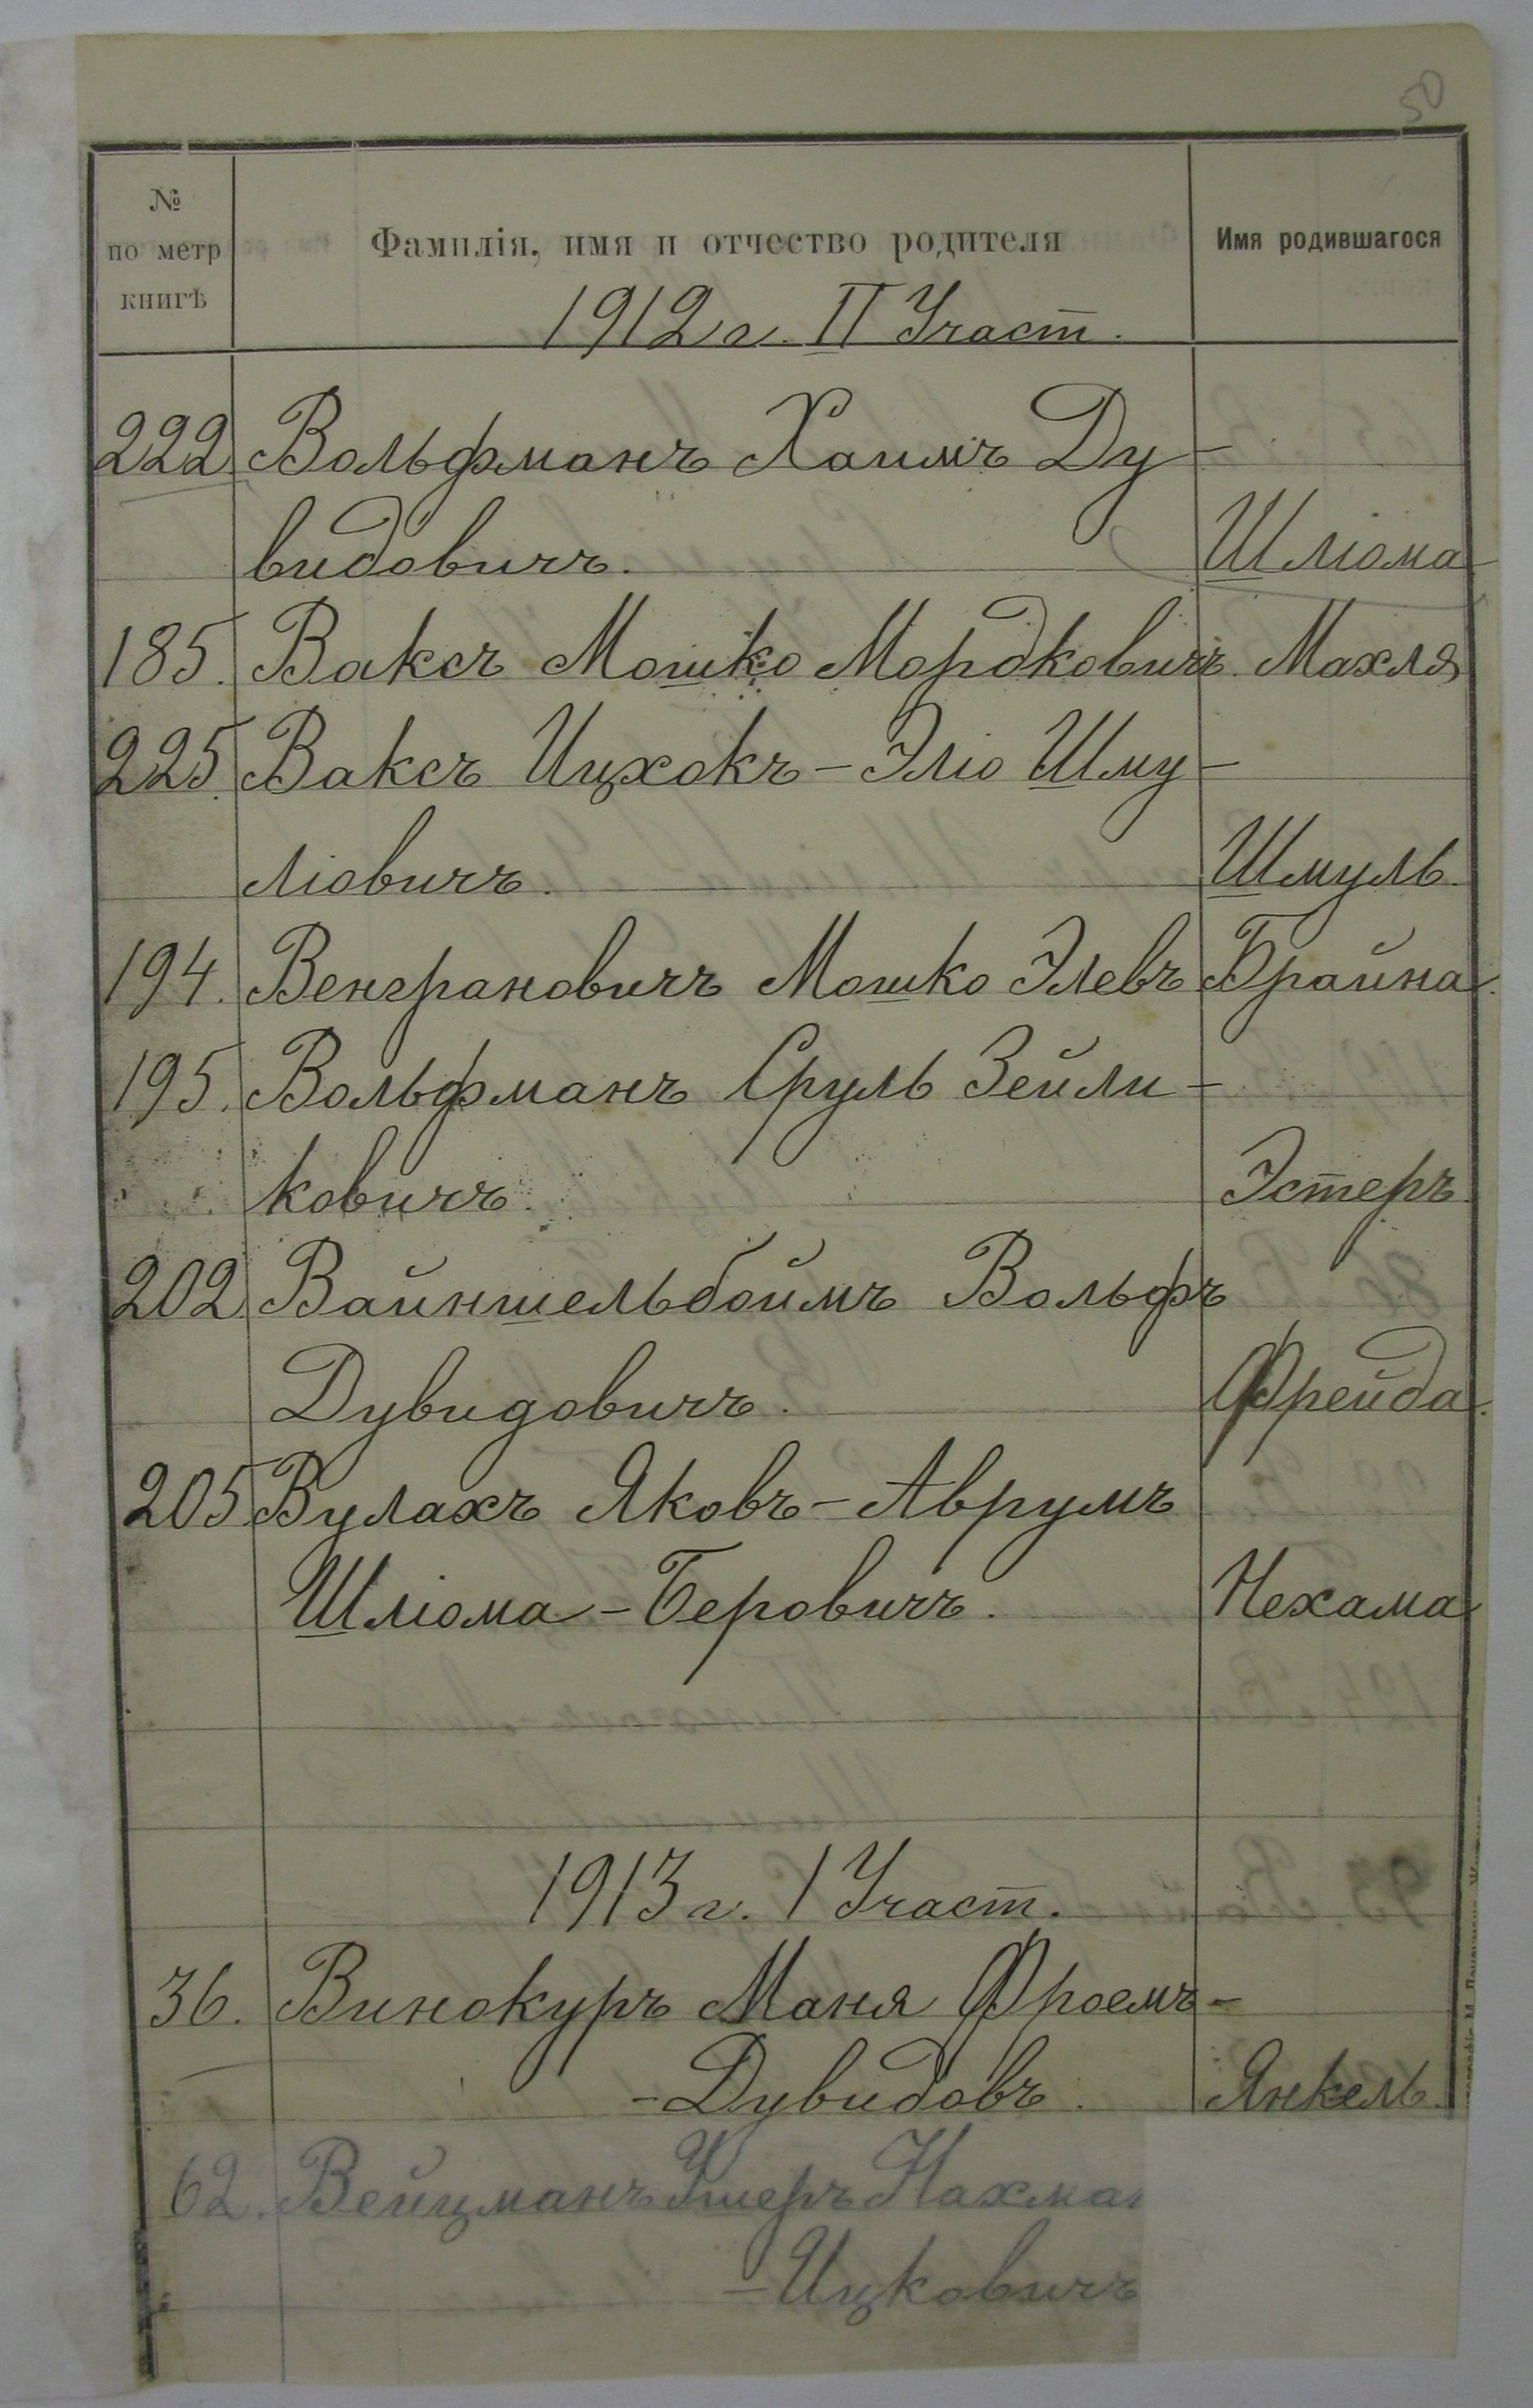 50
№
по метр
книгѣ
Фамилія, имя и отчество родителя
Имя родившагося
1912 г. II Участ.
222 Вольфманъ Хаимъ Ду-
видовичъ. Шліома
185. Ваксъ Мошко Мордковичъ. Махля
225. Ваксъ Ицхокъ-Эліо Шму-
ліовичъ. Шмуль.
194. Венграновичъ Мошко Элевъ Брайна.
195. Вольфманъ Сруль Зейли-
ковичъ. Эстеръ
202. Вайншельбоймъ Вольфъ
Дувидовичъ. Фрейда.
205 Вулахъ Яковъ-Аврумъ
Шліома-Беровичъ. Нехама
1913 г. I Участ.
36. Винокуръ Маня Фроемъ-
-Дувидовъ. Янкель.
62. Вейцманъ Ушеръ Нахман
-Ицковичъ